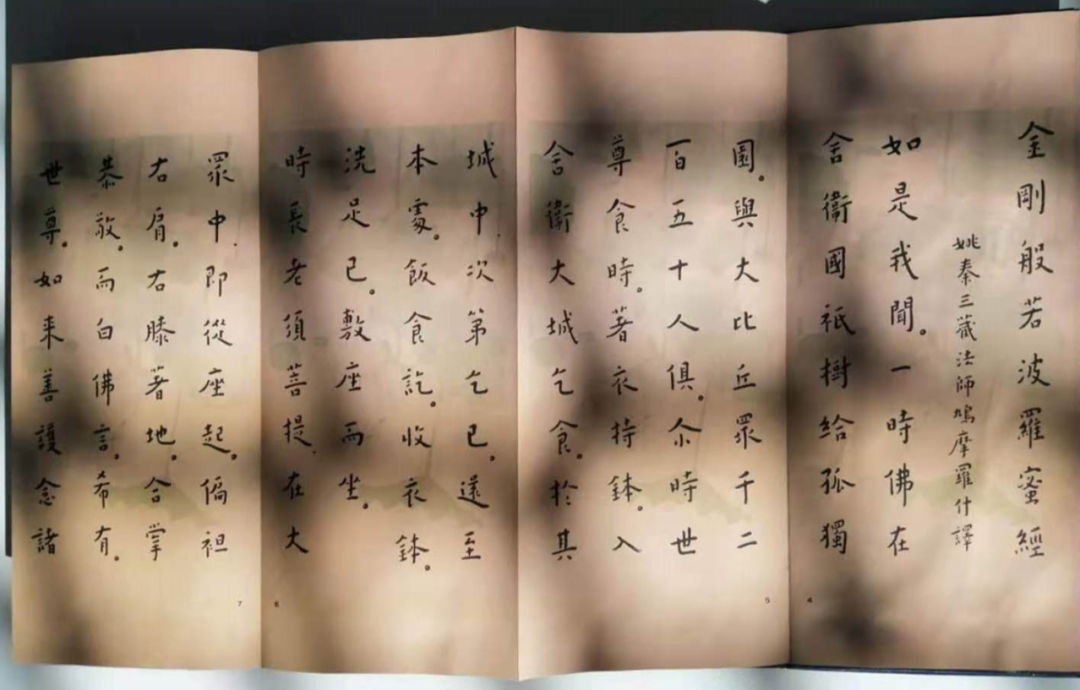 金剛般若波羅蜜經
姚秦三藏法師鳩摩羅什譯
如是我聞。一時佛在
舍衛國祇樹給孤獨
園。與大比丘眾千二
百五十人俱。尒時世
尊食時。著衣持鉢。入
舍衛大城乞食。於其
城中.次第乞已。還至
本處。飯食訖。收衣鉢。
洗足已。敷座而坐。
時長老須菩提.在大
眾中.即從座起。偏袒
右肩。右膝著地。合掌
恭敬。而白佛言。希有。
世尊。如來善護念諸
4
5
6
7